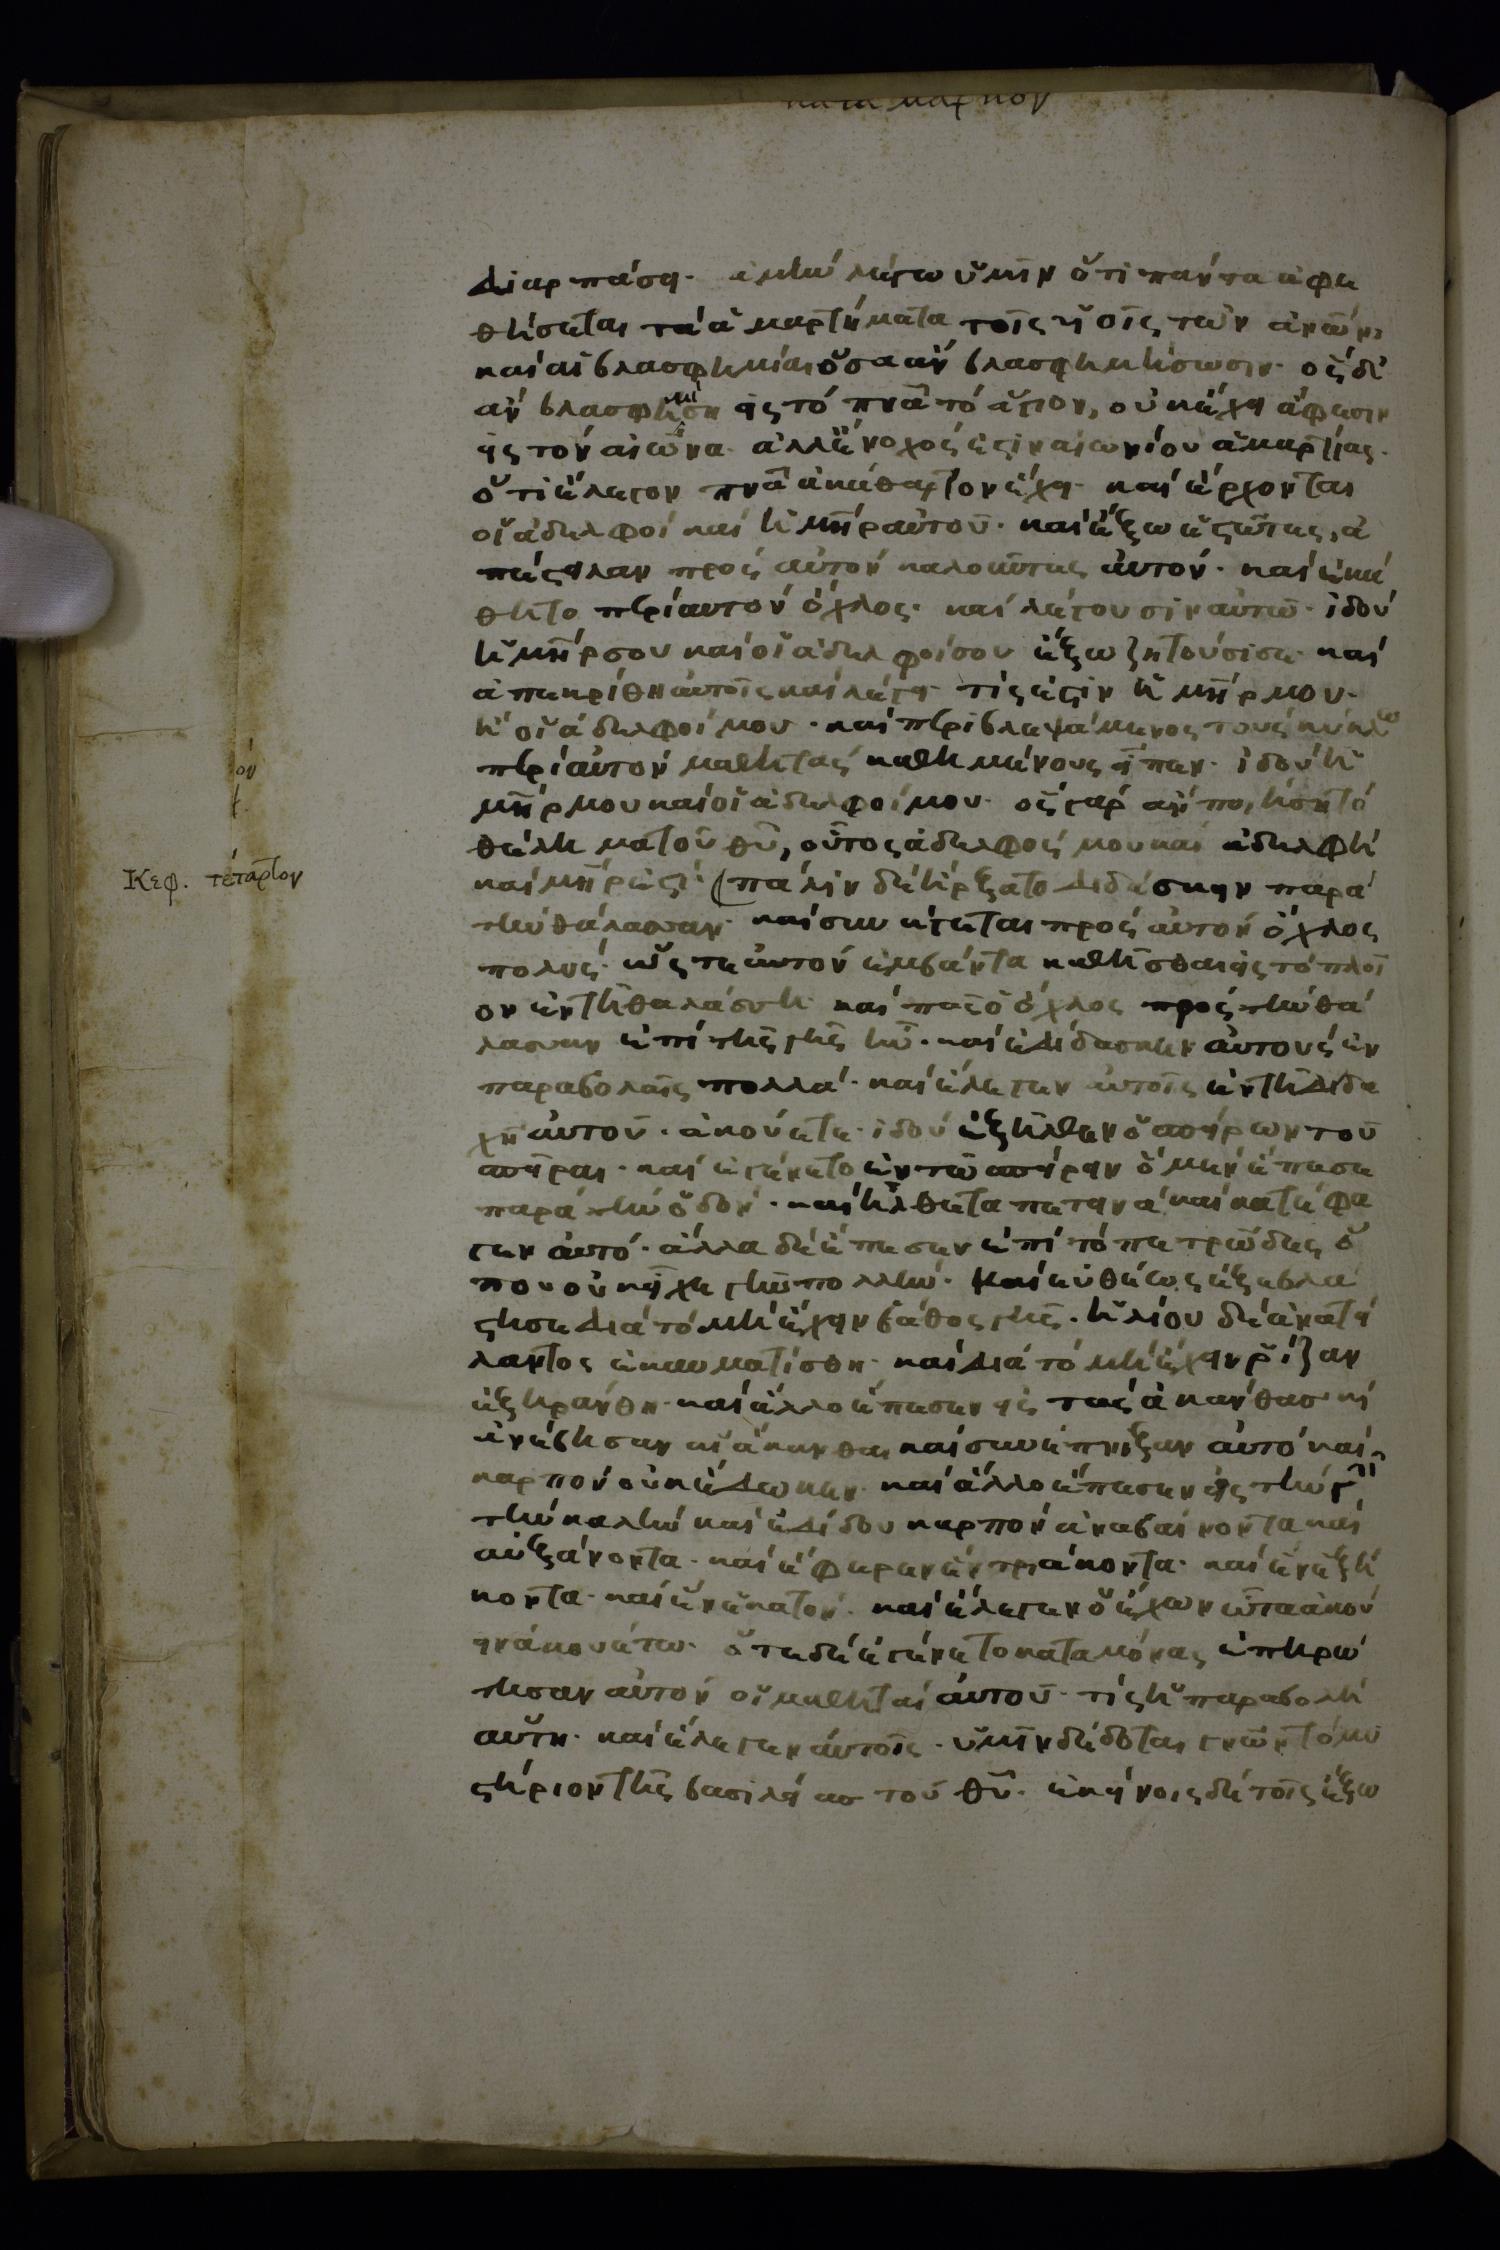 κατα μαρκον
διαρπάσει· ἀμὴν λέγω ὑμῖν ὅτι πάντα ἀφε
θήσεται τὰ ἁμαρτήματα τοῖς υἱοῖς τῶν ἀνῶν,
καὶ αἱ βλασφημίαι ὅσα ἂν βλασφημήσωσιν· ὃς δ'
ἂν βλασφημήση εἰς τὸ πνᾶ τὸ ἅγιον, οὐκ ἔχει ἄφεσιν
εἰς τὸν αἰῶνα· ἀλλ' ἔνοχός ἐστιν αἰωνίου ἁμαρτίας·
ὅτι ἔλεγον πνᾶ ἀκάθαρτον ἔχει· καὶ ἔρχονται
οἱ ἀδελφοὶ καὶ ἡ μηρ αὐτοῦ· καὶ ἔξω ἑστῶτες, ἀ
πέστειλαν πρὸς αὐτὸν καλοῦντες αὐτόν· καὶ ἐκά
θητο περὶ αὐτὸν ὄχλος· καὶ λέγουσιν αὐτῶ· ἰδοὺ
ἡ μηρ σου καὶ οἱ ἀδελφοί σου ἔξω ζητοῦσί σε· καὶ
ἀπεκρίθη αὐτοῖς καὶ λέγει· τίς ἐστιν ἡ μηρ μου·
ἢ οἱ ἀδελφοί μου· καὶ περιβλεψάμενος τοὺς κύκλω
περὶ αὐτὸν μαθητὰς καθημένους εἶπεν· ἰδοὺ ἡ
μηρ μου καὶ οἱ ἀδελφοί μου· ὃς γὰρ ἂν ποιήση τὸ
θέλημα τοῦ θυ, οὗτος ἀδελφός μου καὶ ἀδελφὴ
καὶ μηρ ἐστί· (πάλιν δὲ ἤρξατο διδάσκειν παρὰ
τὴν θάλασσαν· καὶ συνάγεται πρὸς αὐτὸν ὄχλος
πολύς· ὥστε αὐτὸν ἐμβάντα καθῆσθαι εἰς τὸ πλοῖ
ον ἐν τῆ θαλάσση· καὶ πᾶς ὁ ὄχλος πρὸς τὴν θά
λασσαν ἐπὶ τῆς γῆς ἦν· καὶ ἐδίδασκεν αὐτοὺς ἐν
παραβολαῖς πολλά· καὶ ἔλεγεν αὐτοῖς ἐν τῆ διδα
χῆ αὐτοῦ· ἀκούετε· ἰδοὺ ἐξῆλθεν ὁ σπείρων τοῦ
σπεῖραι· καὶ ἐγένετο ἐν τῶ σπείρειν ὃ μὲν ἔπεσε
παρὰ τὴν ὁδόν· καὶ ἦλθε τὰ πετεινὰ καὶ κατέφα
γεν αὐτό· ἄλλα δὲ ἔπεσεν ἐπὶ τὸ πετρῶδες ὅ
που οὐκ εἶχε γῆν πολλήν· καὶ εὐθέως ἐξεβλά
στησε διὰ τὸ μὴ ἔχειν βάθος γῆς· ἡλίου δὲ ἀνατεί
λαντος ἐκαυματίσθη· καὶ διὰ τὸ μὴ ἔχειν ῥίζαν
ἐξηράνθη· καὶ ἄλλο ἔπεσεν εἰς τὰς ἀκάνθας κὶ
ἀνέβησαν αἱ ἄκανθαι καὶ συνέπνιξαν αὐτὸ καὶ
καρπὸν οὐκ ἔδωκεν· καὶ ἄλλο ἔπεσεν εἰς τὴν γῆ
τὴν καλὴν καὶ ἐδίδου καρπὸν ἀναβαίνοντα καὶ
αὐξάνοντα· καὶ ἔφερεν ἐν τριάκοντα· καὶ ἐν ἑξή
κοντα· καὶ ἐν ἑκατόν· καὶ ἔλεγεν ὁ ἔχων ὦτα ἀκού
ειν ἀκουέτω· ὅτε δὲ ἐγένετο καταμόνας ἐπηρώ
τησαν αὐτὸν οἱ μαθηταὶ αὐτοῦ· τίς ἡ παραβολὴ
αὕτη· καὶ ἔλεγεν αὐτοῖς· ὑμῖν δέδοται γνῶναι τὸ μυ
στήριον τῆς βασιλείας τοῦ θυ· ἐκείνοις δὲ τοῖς ἔξω
Κεφ. τέταρτον